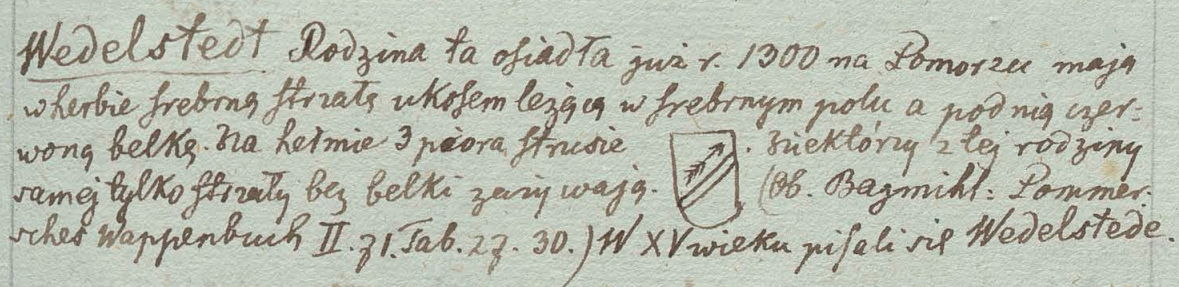 Wedelstedt Rodzina ta osiadła już r. 1300 na Pomorzu mają
w herbie srebrną strzałę ukosem leżącą w srebrnym polu a pod nią czer-
woną belkę. Na hełmie 3 pióra strusie . Niektórzy z tej rodziny
samej tylko strzały bez belki zażywają. (Ob. Bagmihl: Pommer-
sches Wappenbuch II. 71. Tab. 27. 30.) W XV wieku pisali się Wedelstede.